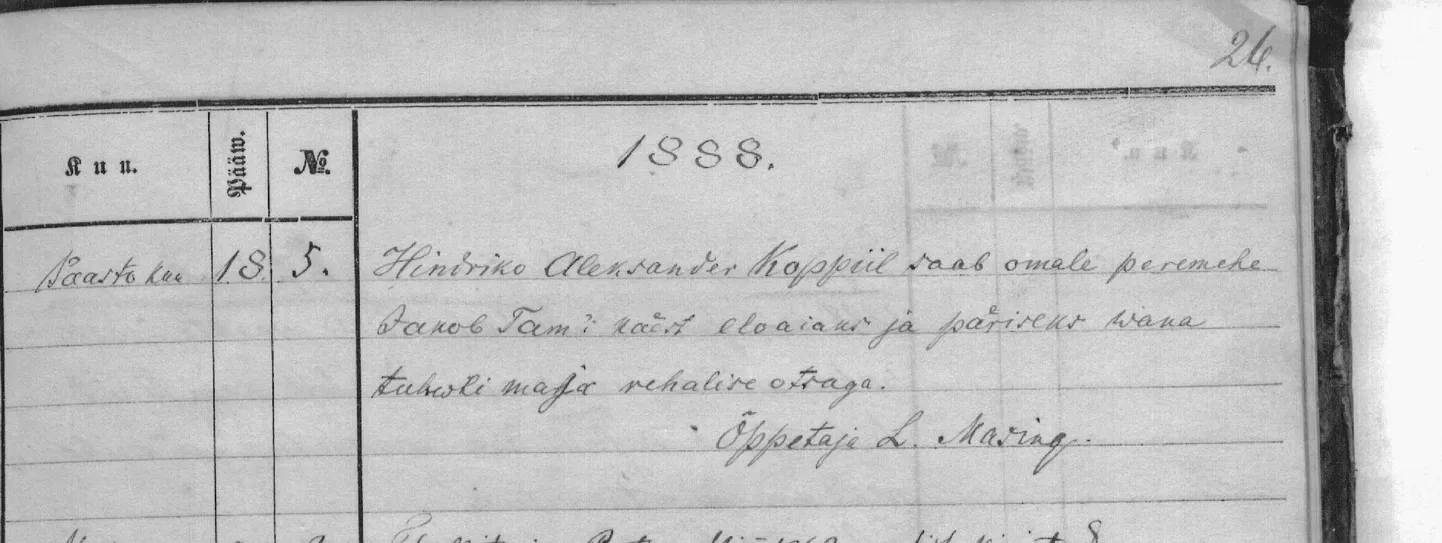 26.
Kuu. Pääw. № 1888.
Paasto kuu 18. 5. Hindriko Aleksander Koppiil saab omale peremehe
Jakob Tam'i käest eloaiaks ja päriseks wana
maja rehalise otsaga.
Õppetaja L. Masing.